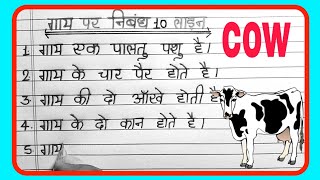 गाय पर निबंध 10 लाइन
COW
1. गाय एक पालतु पशु है।
2. गाय के चार पैर होते है।
3. गाय की दो आँखे होती है
4. गाय के दो कान होते है।
5 गाय